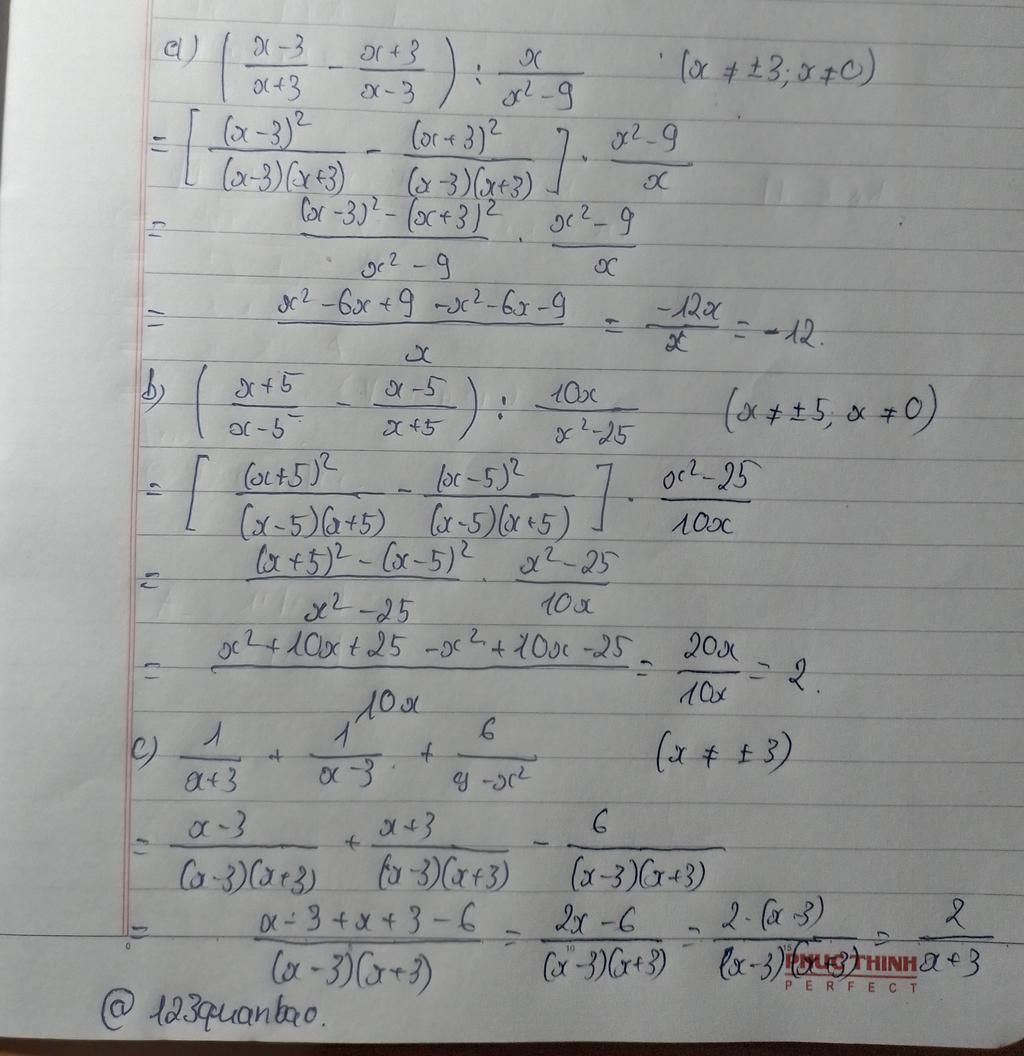 a) ( (x-3)/(x+3) - (x+3)/(x-3) ) : x/(x²-9) (x ≠ ±3; x≠0)
= [ (x-3)²/((x-3)(x+3)) - (x+3)²/((x-3)(x+3)) ] . (x²-9)/x
= ((x-3)²-(x+3)²)/(x²-9) . (x²-9)/x
= (x²-6x+9-x²-6x-9)/x = -12x/x = -12.
b) ( (x+5)/(x-5) - (x-5)/(x+5) ) : 10x/(x²-25) (x ≠ ±5; x ≠0)
= [ (x+5)²/((x-5)(x+5)) - (x-5)²/((x-5)(x+5)) ] . (x²-25)/10x
= ((x+5)²-(x-5)²)/(x²-25) . (x²-25)/10x
= (x²+10x+25-x²+10x-25)/10x = 20x/10x = 2.
c) 1/(x+3) + 1/(x-3) + 6/(9-x²) (x ≠ ±3)
= (x-3)/((x-3)(x+3)) + (x+3)/((x-3)(x+3)) - 6/((x-3)(x+3))
= (x-3+x+3-6)/((x-3)(x+3)) = (2x-6)/((x-3)(x+3)) = 2.(x-3)/((x-3)(x+3)) = 2/(x+3)
0 10 15
PHUC THINH
PERFECT
@ 123quanbao.